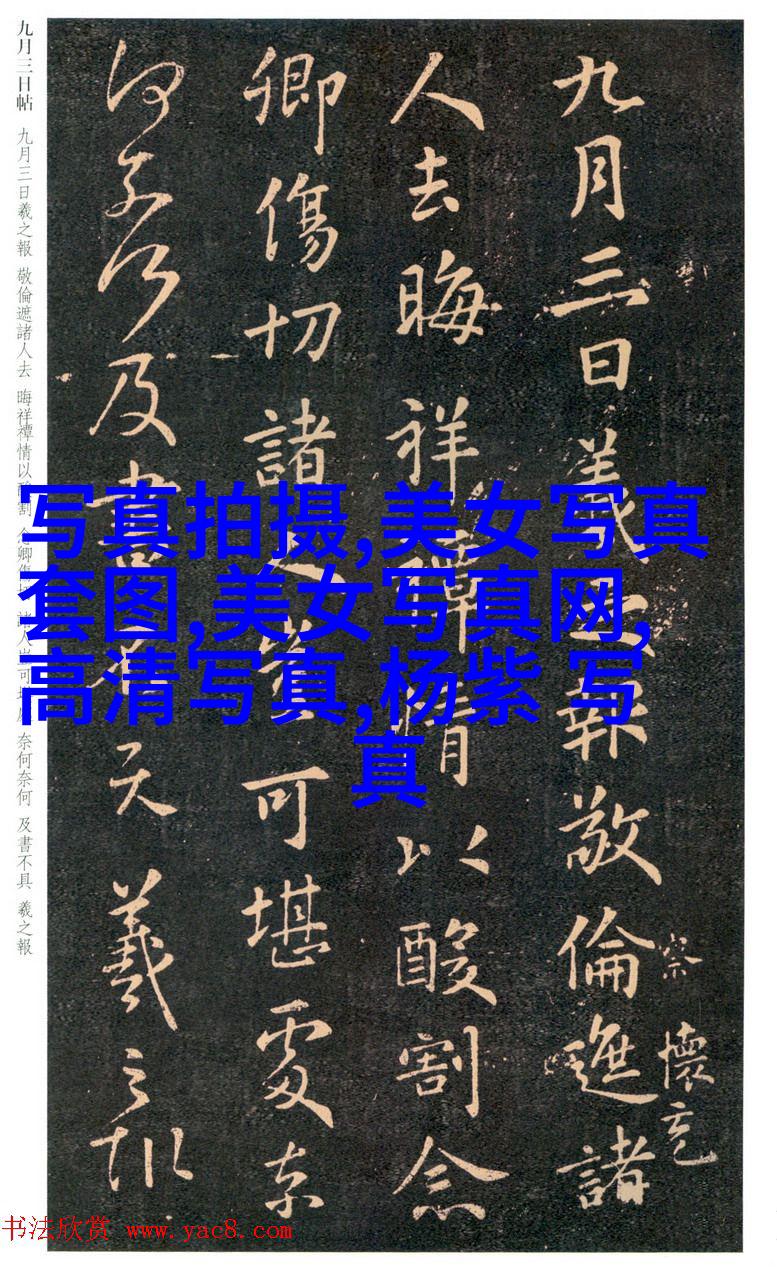 九月三日羲之報敬倫遮諸
察 懷充
人去晦祥禫情以酸割念
卿傷切諸人豈可堪處奈
何奈何及書不 羲之報
九月三日帖 九月三日羲之報 敬倫遮諸人去 晦祥禫情以酸割 念卿傷切 諸人豈可堪處 奈何奈何 及書不具 羲之報
写真拍摄,美女写真
套图,美女写真网,
高清写真,杨紫 写
真
书法欣赏 www.yac8.com